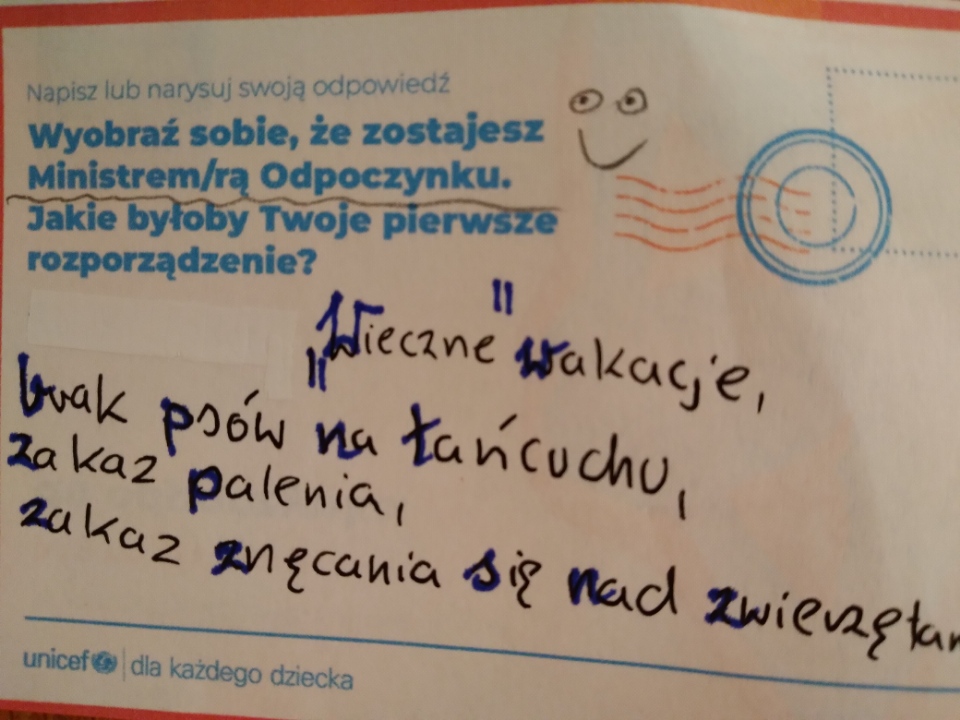 Napisz lub narysuj swoją odpowiedź
Wyobraź sobie, że zostajesz
Ministrem/rą Odpoczynku.
Jakie byłoby Twoje pierwsze
rozporządzenie?
„Wieczne" wakacje,
brak psów na łańcuchu,
zakaz palenia,
zakaz znęcania się nad
unicef dla każdego dziecka